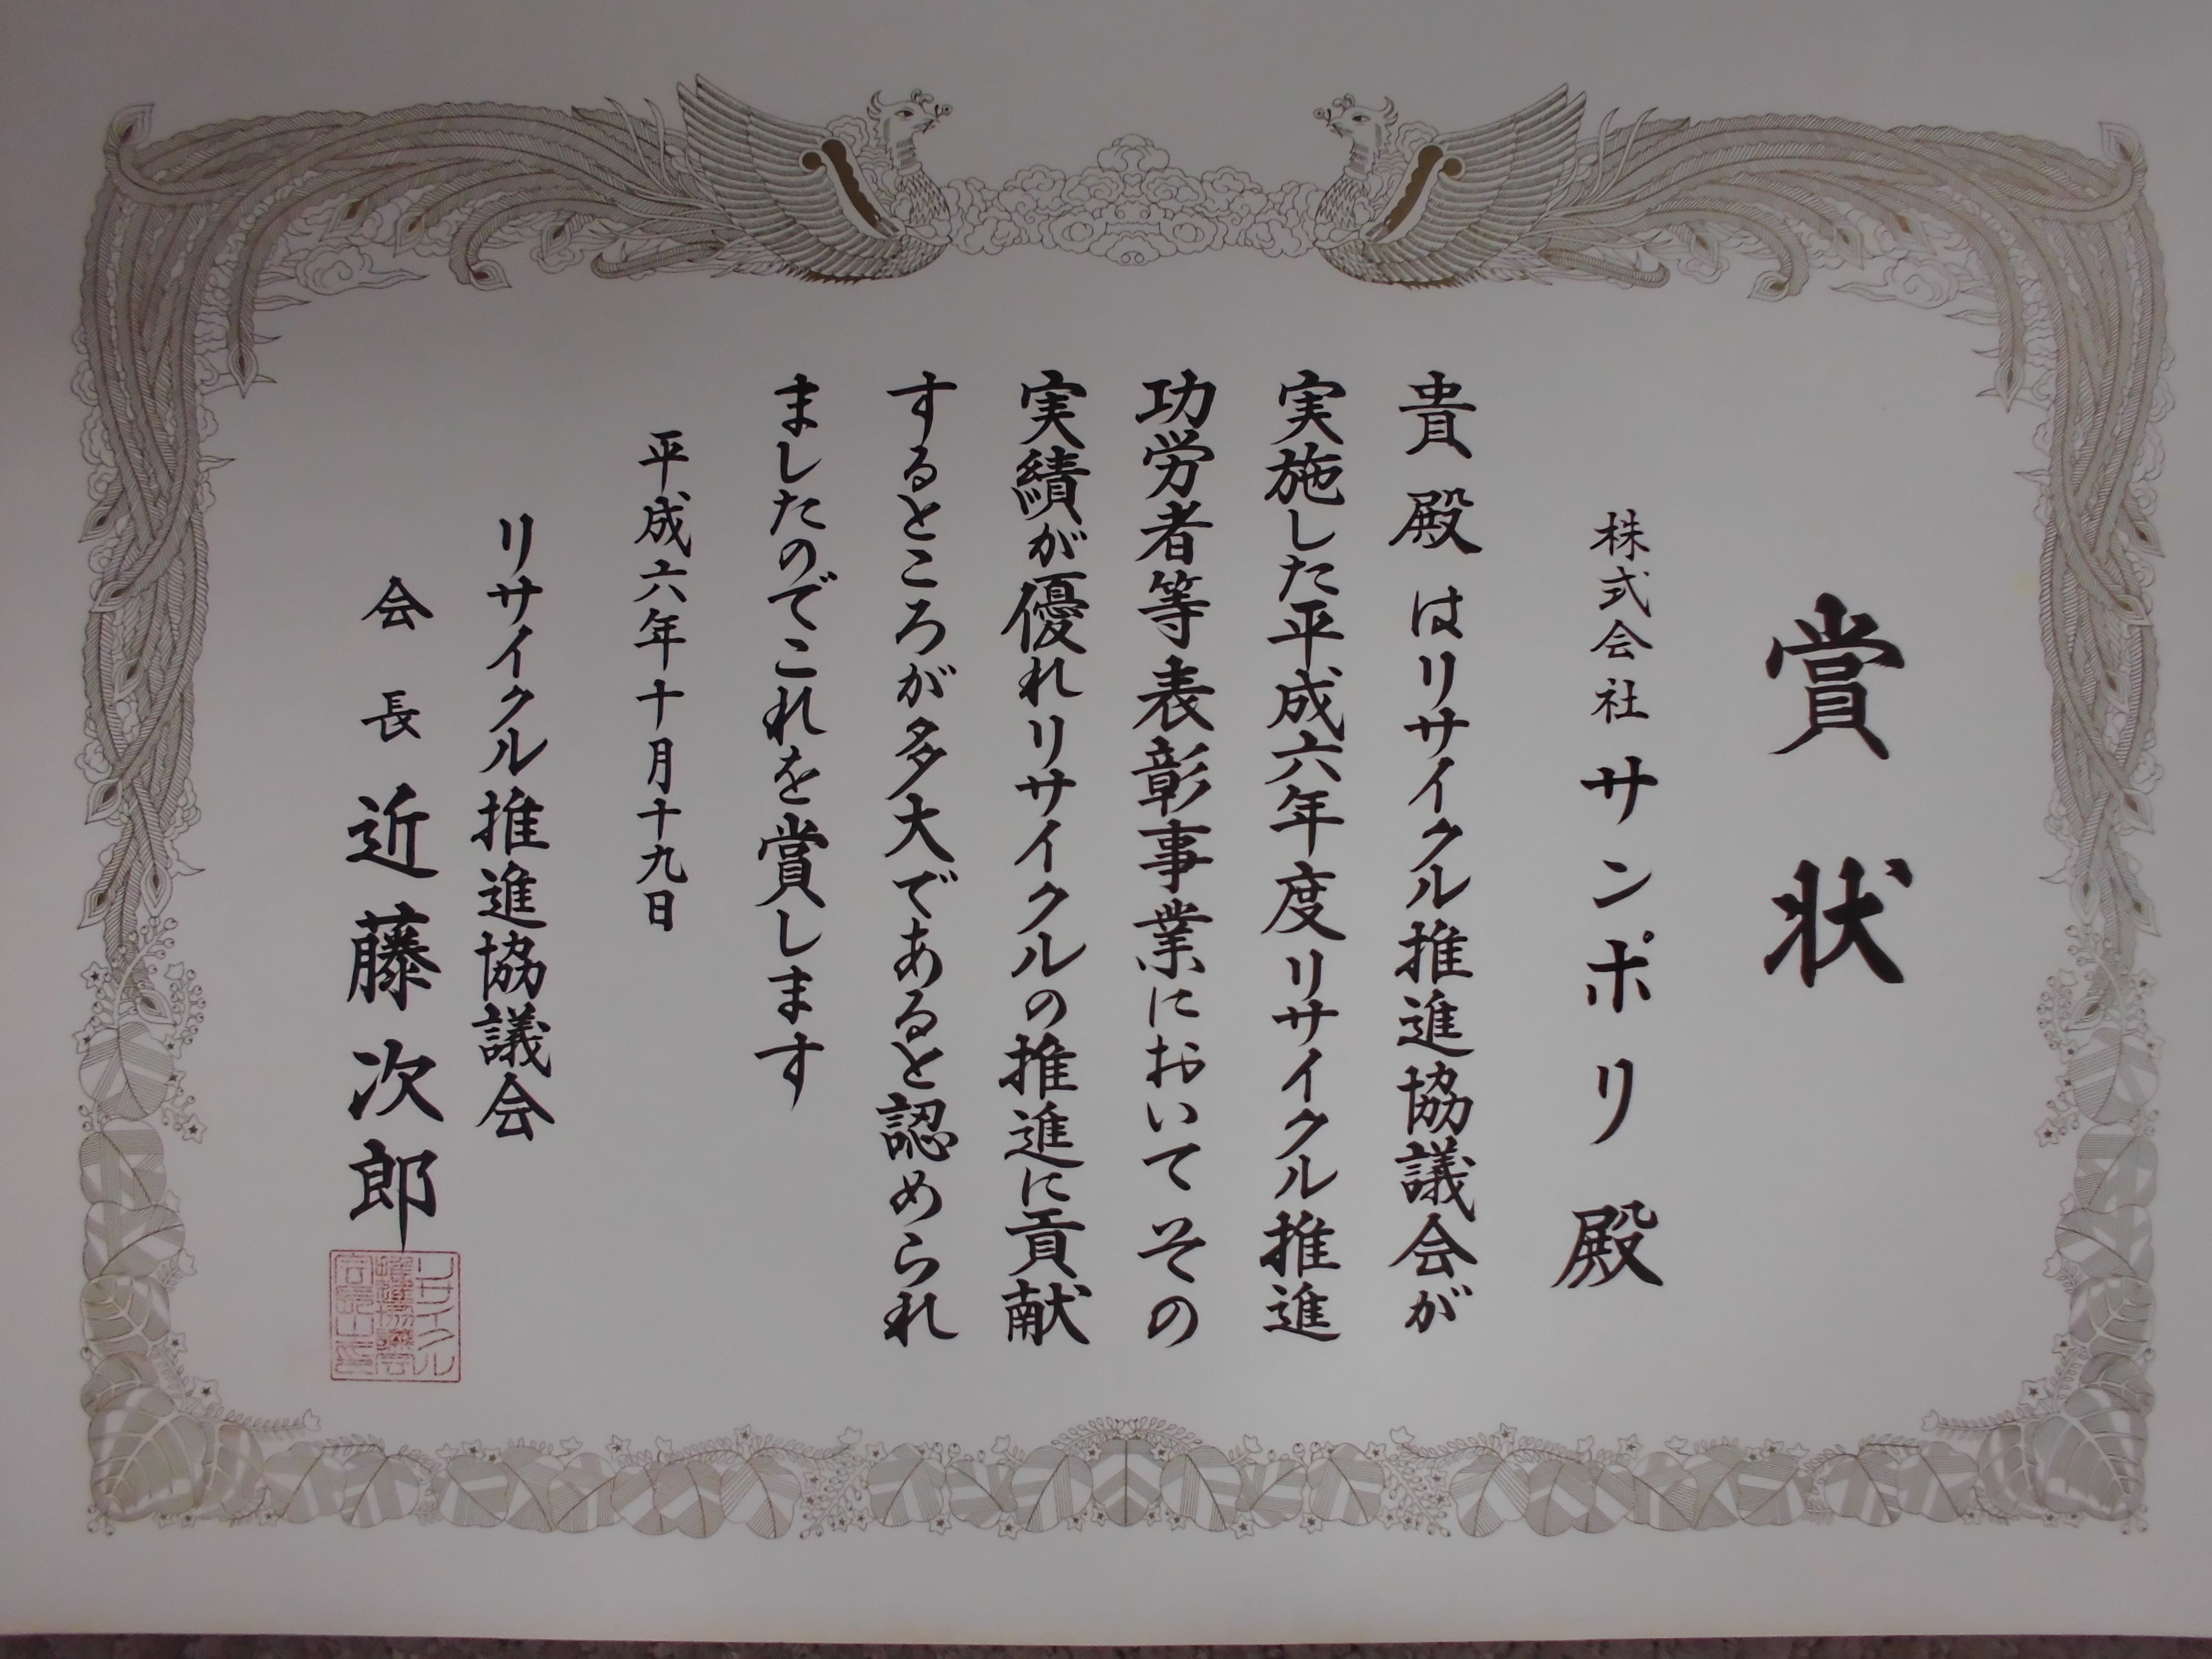 賞状
株式会社サンポリ殿
貴殿はリサイクル推進協議会が
実施した平成六年度リサイクル推進
功労者等表彰事業においてその
実績が優れリサイクルの推進に貢献
するところが多大であると認められ
ましたのでこれを賞します
平成六年十月十九日
リサイクル推進協議会
会長近藤次郎
リサイクル
推進協議会
会長之印